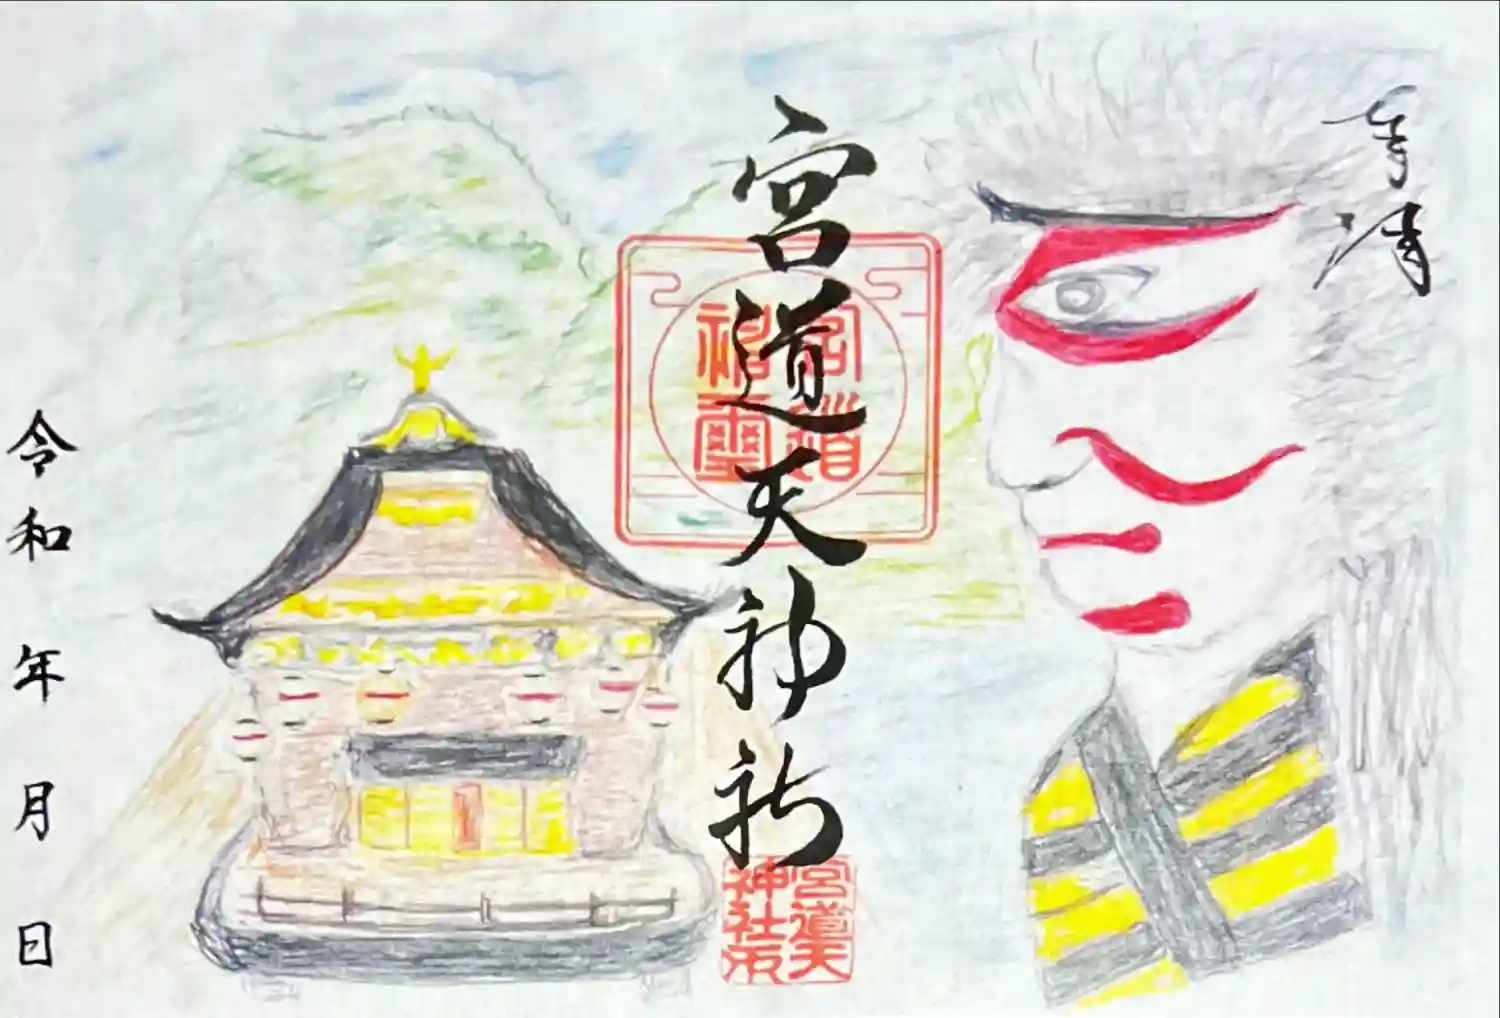 宮道天神社
宮道
神璽
宮道天
神社印
令和　年　月　日